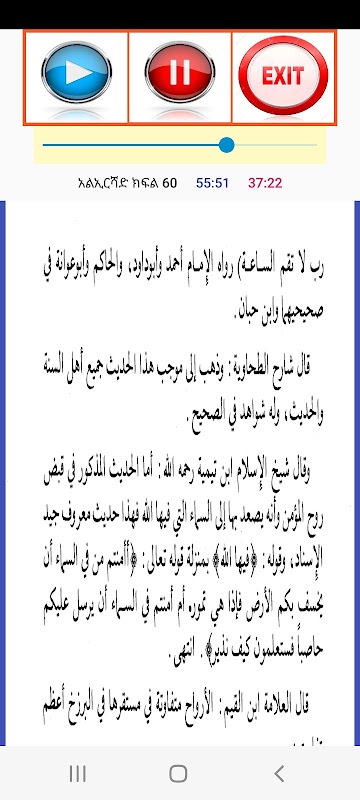 EXIT
አልኢርሻድ ክፍል 60 55:51 37:22
رب لا تقم الساعة) رواه الإمام أحمد وأبوداود، والحاكم وأبوعوانة في
صحيحيهما وابن حبان.
قال شارح الطحاوية: وذهب إلى موجب هذا الحديث جميع أهل السنة
والحديث، وله شواهد في الصحيح.
وقال شيخ الإسلام ابن تيمية رحمه الله: أما الحديث المذكور في قبض
روح المؤمن وأنه يصعد بها إلى السماء التي فيها الله فهذا حديث معروف جيد
الإسناد، وقوله: ﴿فيها الله﴾ بمنزلة قوله تعالى: ﴿أأمنتم من في السماء أن
يخسف بكم الأرض فإذا هي تمور. أم أمنتم في السماء أن يرسل عليكم
حاصباً فستعلمون كيف نذير﴾. انتهى.
قال العلامة ابن القيم: الأرواح متفاوتة في مستقرها في البرزخ أعظم